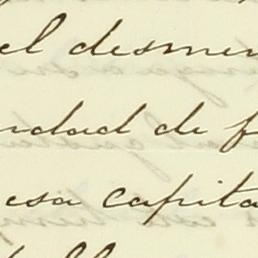 el desmen
ndad de f
esa capita